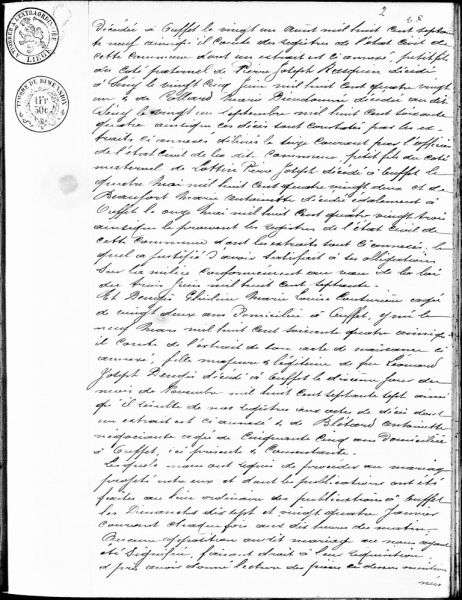 2
38
TIMBRE DE DIMENSION
1 FR
50 C
LIEGE
Décédée à Ouffet le vingt un Aout mil huit cent septante
neuf ainsi qu'il conste des registres de l'état civil de
cette commune dont un extrait est ci annexé, petit fils
du coté paternel de Pierre Joseph décédé
à le vingt cinq Juin mil huit cent quatre vingt
un & de Marie Dieudonnée décédée au dit
le vingt un septembre mil huit cent soixante
quatre ainsi que ces décès sont constatés par les ex-
traits ci annexés délivrés le courant par l'officier
de l'état civil de la dite Commune, petit fils du coté
maternel de Pierre Joseph décédé à Ouffet le
quatre Mai mil huit cent quatre vingt deux et de
Beaufort Marie Antoinette décédée également à
Ouffet le onze Mai mil huit cent quatre vingt trois
ainsi que le prouvent les registres de l'état civil de
cette commune dont les extraits sont ci annexés, le
quel a justifié d'avoir satisfait à ses obligations
sur la milice conformément au vœu de la loi
du trois Juin mil huit cent septante.
Et Ghislaine Marie Louise Couturière agée
de vingt deux ans Domiciliée à Ouffet, y née le
neuf Mars mil huit cent soixante quatre ainsi qu'
il conste de l'extrait de son acte de naissance ci
annexé, fille majeure & légitime de feu Léonard
Joseph décédé à Ouffet le dixième jour du
mois de Novembre mil huit cent septante sept ainsi
qu'il résulte de nos registres aux actes de décès dont
un extrait est ci annexé & de Antoinette
négociante agée de Cinquante cinq ans Domiciliée
à Ouffet, ici présente & Consentante.
Lesquels nous ont requis de procéder au mariage
projeté entre eux et dont les publications ont été
faites au lieu ordinaire des publications à Ouffet
les Dimanches dix sept et vingt quatre Janvier
courant chaque fois aux dix heures du matin.
Aucune opposition au dit mariage ne nous ayant
été signifiée, faisant droit à leur réquisition
& près avoir donné lecture des pièces ci dessus mention
nées